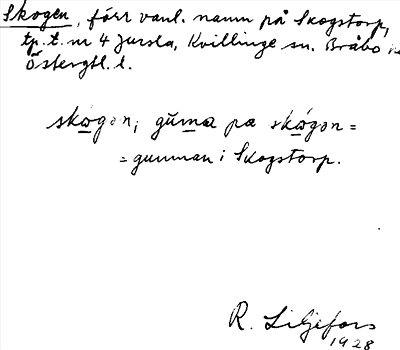 Skogen, förr vanl. namn på Skogstorp,
tp. t. nr 4 Jursla, Kvillinge sn. Bråbo
Östergtl. l.
skogən; guma pa skógən =
= gumman i Skogstorp.
R. Liljefors
1928